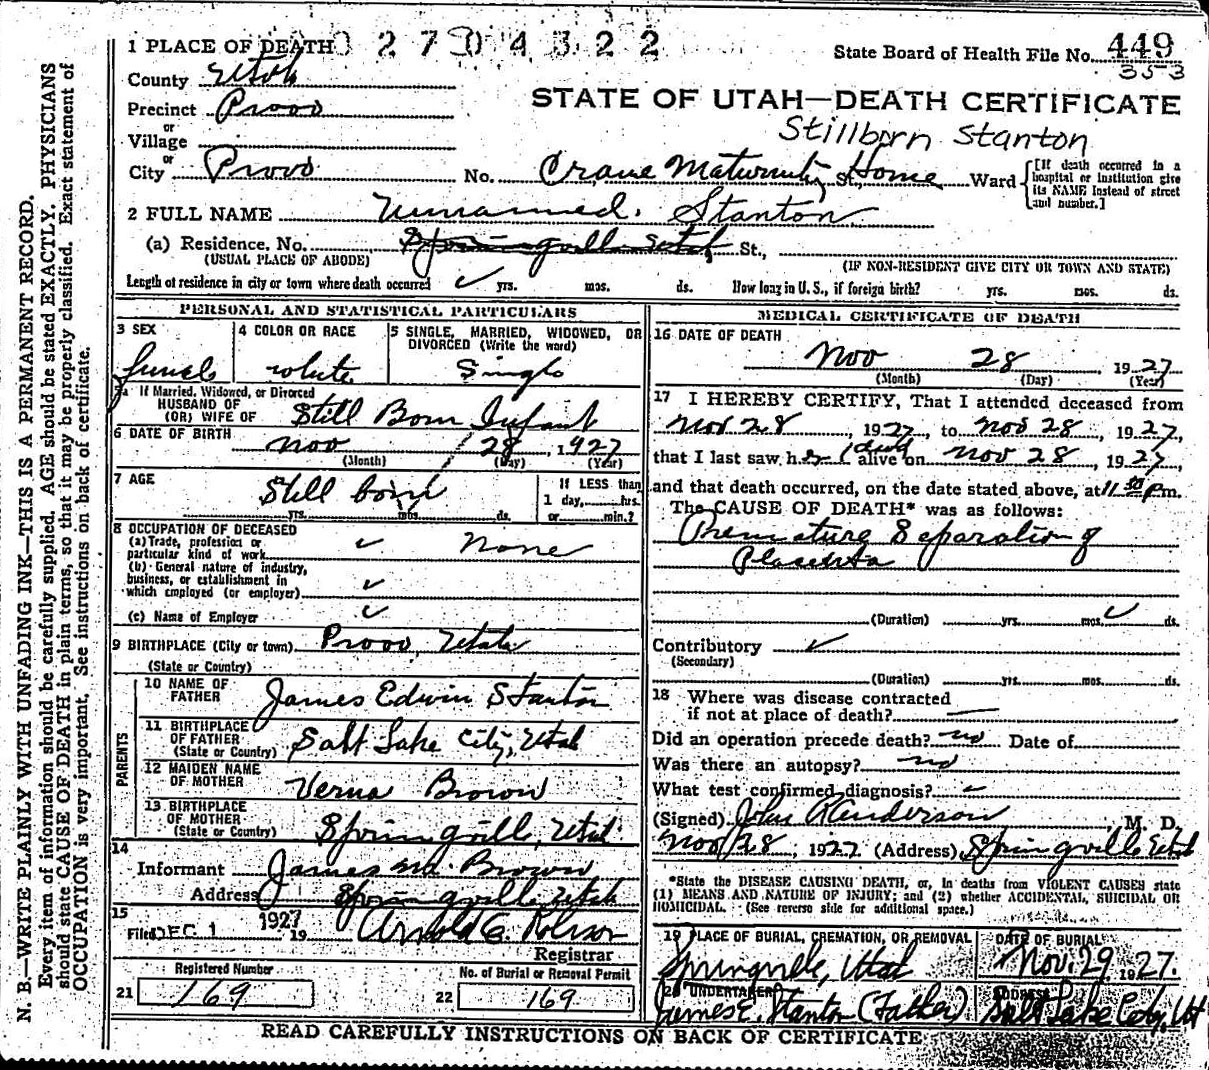 N. B.—WRITE PLAINLY WITH UNFADING INK—THIS IS A PERMANENT RECORD.
Every item of information should be carefully supplied. AGE should be stated EXACTLY. PHYSICIANS
should state CAUSE OF DEATH in plain terms, so that it may be properly classified. Exact statement of
OCCUPATION is very important. See instructions on back of certificate.
2704322
1 PLACE OF DEATH
State Board of Health File No. 449
353
County Utah
Precinct Provo
STATE OF UTAH—DEATH CERTIFICATE
or
Village
Stillborn Stanton
or
City Provo No. Crane Maternity St., Home Ward
[If death occurred in a
hospital or institution give
its NAME instead of street
and number.]
2 FULL NAME Unnamed. Stanton
(a) Residence, No. Springville Utah St.,
(USUAL PLACE OF ABODE) (IF NON-RESIDENT GIVE CITY OR TOWN AND STATE)
Length of residence in city or town where death occurred ✓ yrs. mos. ds. How long in U. S., if foreign birth? yrs. mos. ds.
PERSONAL AND STATISTICAL PARTICULARS
3 SEX
female
4 COLOR OR RACE
white
5 SINGLE, MARRIED, WIDOWED, OR
DIVORCED (Write the word)
Single
5a If Married, Widowed, or Divorced
HUSBAND OF
(OR) WIFE OF Still Born Infant
6 DATE OF BIRTH Nov 28, 1927
(Month) (Day) (Year)
7 AGE Still born
yrs. mos. ds.
If LESS than
1 day, hrs.
or min.?
8 OCCUPATION OF DECEASED
(a) Trade, profession or
particular kind of work ✓ None
(b) General nature of industry,
business, or establishment in
which employed (or employer) ✓
(c) Name of Employer ✓
9 BIRTHPLACE (City or town) Provo, Utah
(State or Country)
PARENTS
10 NAME OF
FATHER James Edwin Stanton
11 BIRTHPLACE
OF FATHER
(State or Country) Salt Lake City, Utah
12 MAIDEN NAME
OF MOTHER Verna Brown
13 BIRTHPLACE
OF MOTHER
(State or Country) Springville, Utah
14
Informant James M. Brown
Address Springville, Utah
15
Filed DEC 1 1927 19 Arnold G. Robison
Registrar
Registered Number
21 169
No. of Burial or Removal Permit
22 169
MEDICAL CERTIFICATE OF DEATH
16 DATE OF DEATH
Nov 28, 1927
(Month) (Day) (Year)
17 I HEREBY CERTIFY, That I attended deceased from
Nov 28, 1927, to Nov 28, 1927,
that I last saw her dead alive on Nov 28, 1927,
and that death occurred, on the date stated above, at 11 30 Pm.
The CAUSE OF DEATH* was as follows:
Premature Separation of
Placenta
(Duration) yrs. mos. ✓ ds.
Contributory ✓
(Secondary)
(Duration) yrs. mos. ds.
18 Where was disease contracted
if not at place of death?
Did an operation precede death? no Date of
Was there an autopsy? no
What test confirmed diagnosis?
(Signed) John Anderson, M. D.
Nov 28, 1927 (Address) Springville Utah
*State the DISEASE CAUSING DEATH, or, in deaths from VIOLENT CAUSES state
(1) MEANS AND NATURE OF INJURY; and (2) whether ACCIDENTAL, SUICIDAL OR
HOMICIDAL. (See reverse side for additional space.)
19 PLACE OF BURIAL, CREMATION, OR REMOVAL
Springville, Utah
DATE OF BURIAL
Nov. 29 1927.
20 UNDERTAKER
James E. Stanton (Father)
ADDRESS
Salt Lake City, Ut
READ CAREFULLY INSTRUCTIONS ON BACK OF CERTIFICATE